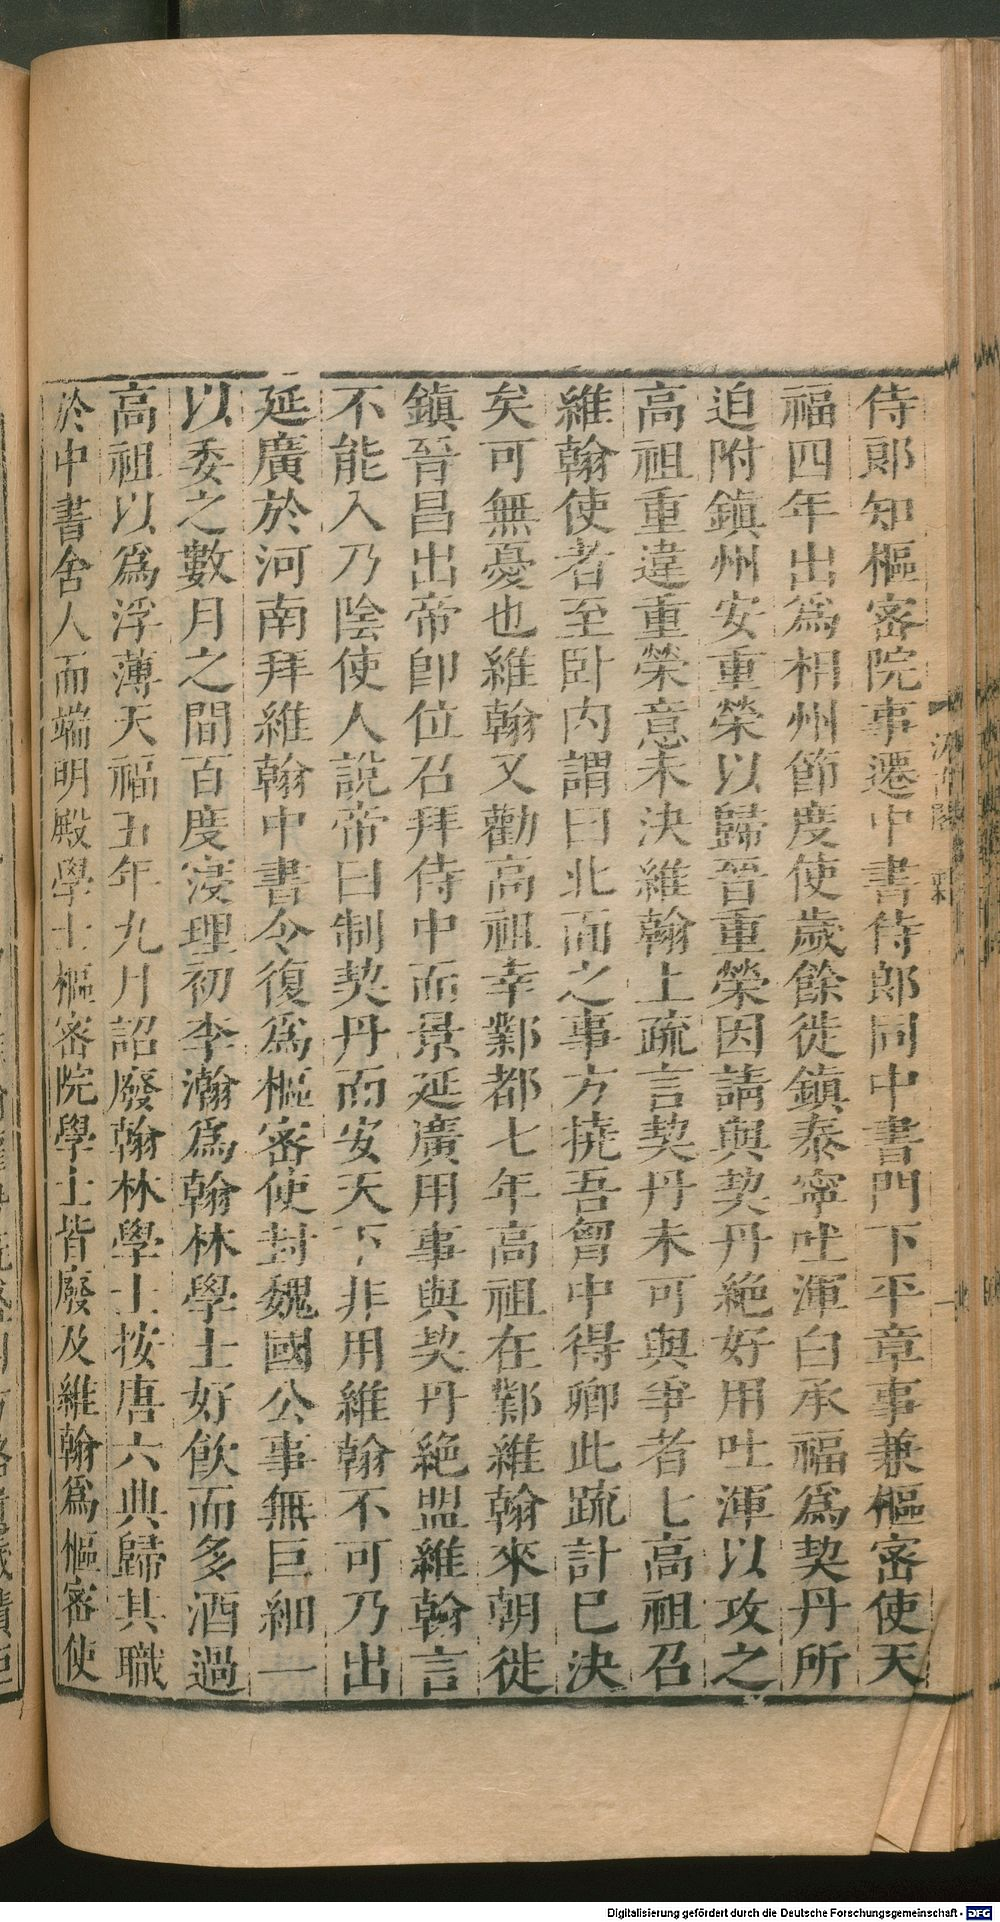 侍郎知樞密院事遷中書侍郎同中書門下平章事兼樞密使天
福四年出爲相州節度使歲餘徙鎮泰寧吐渾白承福爲契丹所
迫附鎮州安重榮以歸晉重榮因請與契丹絶好用吐渾以攻之
高祖重違重榮意未決維翰上疏言契丹未可與爭者七高祖召
維翰使者至卧内謂曰北面之事方撓吾胷中得卿此疏計已決
矣可無憂也維翰又勸高祖幸鄴都七年高祖在鄴維翰來朝徙
鎮晉昌出帝卽位召拜侍中而景延廣用事與契丹絶盟維翰言
不能入乃陰使人說帝曰制契丹而安天下非用維翰不可乃出
延廣於河南拜維翰中書令復爲樞密使封魏國公事無巨細一
以委之數月之間百度寖理初李瀚爲翰林學士好飲而多酒過
高祖以爲浮薄天福五年九月詔廢翰林學士按唐六典歸其職
於中書舍人而端明殿學士樞密院學士皆廢及維翰爲樞密使
Digitalisierung gefördert durch die Deutsche Forschungsgemeinschaft - DFG